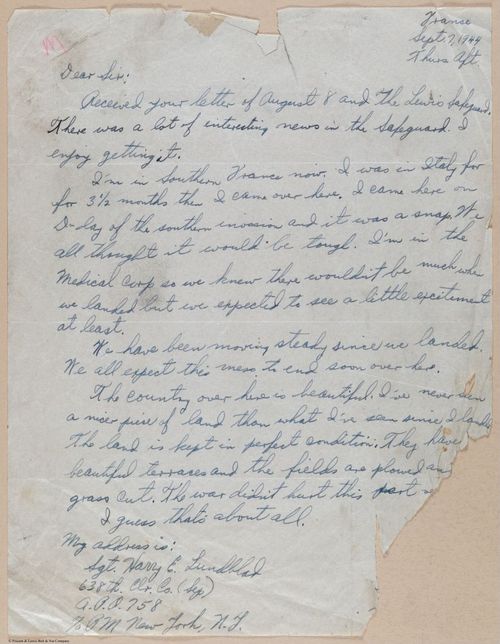 M
France
Sept. 7, 1944
Thurs Aft.
Dear Sir:
Received your letter of August 8 and the Lewis Safeguard.
There was a lot of interesting news in the Safeguard. I
enjoy getting it.
I'm in Southern France now. I was in Italy for
for 3 1/2 months then I came over here. I came here on
D-day of the southern invasion and it was a snap. We
all thought it would be tough. I'm in the
Medical Corp so we knew there wouldn't be much when
we landed but we expected to see a little excitement
at least.
We have been moving steady since we landed.
We all expect this mess to end soon over here.
The country over here is beautiful. I've never seen
a nicer piece of land than what I've seen since I lande
The land is kept in perfect condition. They have
beautiful terraces and the fields are plowed an
grass cut. The war didn't hurt this part
I guess that's about all.
My address is:
Sgt. Harry E. Lundblad
638th. Clr. Co. (Sep)
A.P.O. 758
% P.M. New York, N.Y.